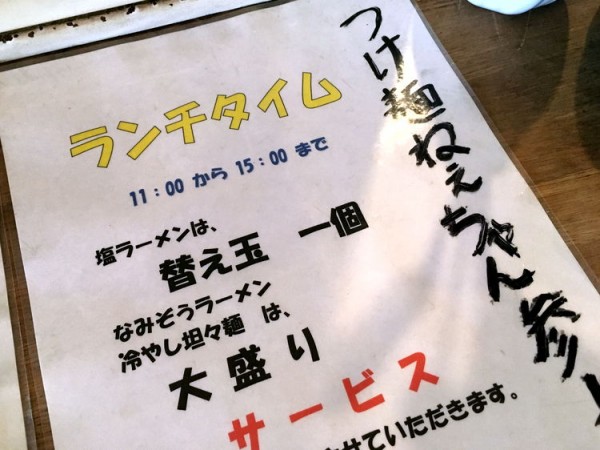 ランチタイム
11：00 から 15：00 まで
塩ラーメンは、
替え玉 一個
なみぞうラーメン
冷やし坦々麺 は、
大盛り
サービス
せていただきます。
つけ麺ねぇちゃん参